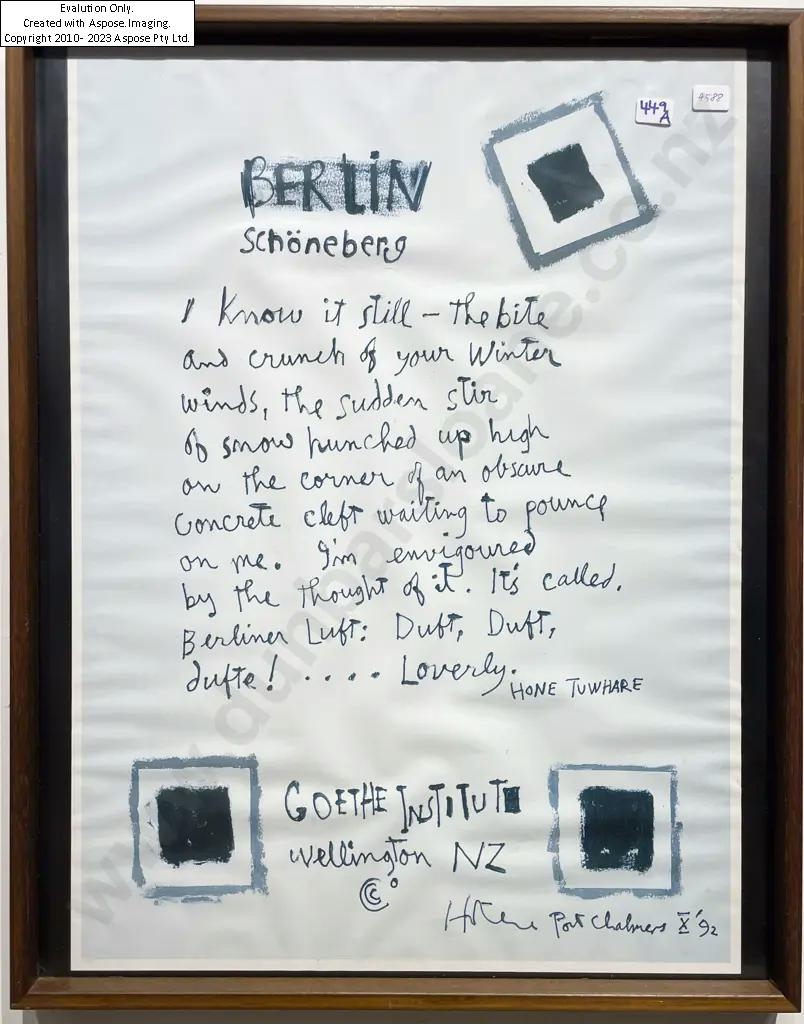 Evalution Only.
Created with Aspose.Imaging.
Copyright 2010- 2023 Aspose Pty Ltd.
449
A
4588
BERLIN
Schöneberg
I know it still – the bite
and crunch of your Winter
winds, the sudden stir
of snow hunched up high
on the corner of an obscure
concrete cleft waiting to pounce
on me. I'm envigoured
by the thought of it. It's called.
Berliner Luft: Duft, Duft,
dufte! .... Loverly.
HONE TUWHARE
GOETHE INSTITUT
Wellington NZ
©
Hotere Port Chalmers X '92
www.dunbarsloane.co.nz